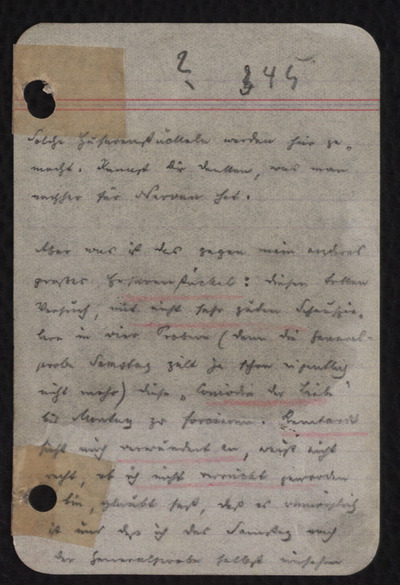 ? 345
Solche Husarenstückeln werden hier ge-
macht. Kannst Dir denken, was man
nachher für Nerven hat.
Aber was ist das gegen mein anderes
großes Husarenstückel: diesen tollen
Versuch, mit nicht sehr guten Schauspie-
lern in vier Proben (denn die General-
probe Samstag zählt ja schon eigentlich
nicht mehr) diese „Comödie der Liebe"
bis Montag zu forcieren.
sieht mich verwundert an, weiß nicht
recht, ob ich nicht verrückt geworden
bin, glaubt fest, daß es unmöglich
ist und daß ich das Samstag nach
der Generalprobe selbst einsehen